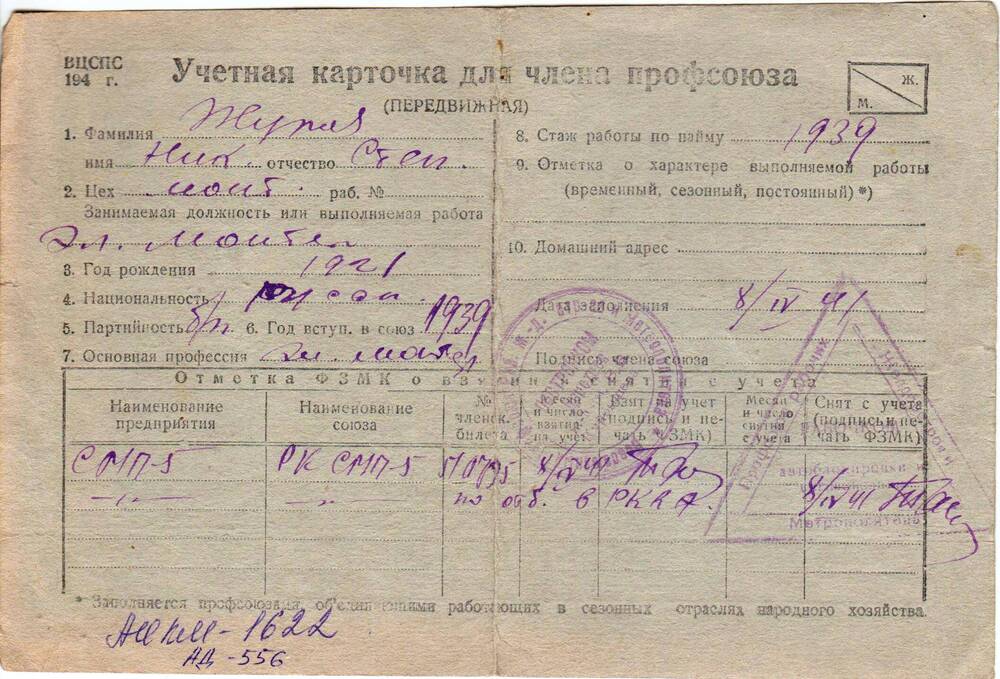 ВЦСПС
194 г.
Учетная карточка для члена профсоюза
(ПЕРЕДВИЖНАЯ)
Ж.
М.
1. Фамилия
имя Ник. отчество Степ.
2. Цех монт. раб. №
Занимаемая должность или выполняемая работа
эл. монтер
3. Год рождения 1921
4. Национальность русск.
5. Партийность б/п 6. Год вступ. в союз 1939
7. Основная профессия эл. монтер
8. Стаж работы по найму 1939
9. Отметка о характере выполняемой работы
(временный, сезонный, постоянный) *)
10. Домашний адрес
Дата заполнения 8/IV 41
Подпись члена союза
Отметка ФЗМК о взятии и снятии с учета
Наименование предприятия
Наименование союза
№ членск. билета
Месяц и число взятия на учет
Взят на учет (подпись и печать ФЗМК)
Месяц и число снятия с учета
Снят с учета (подпись и печать ФЗМК)
СМП-5 РК СМП-5 8/IV 41
—"— —"— по об. в РККА. 8/IV 41
автоблокировки и
Метрополитена
* Заполняется профсоюзами, объединяющими работающих в сезонных отраслях народного хозяйства.
-1622
АД-556